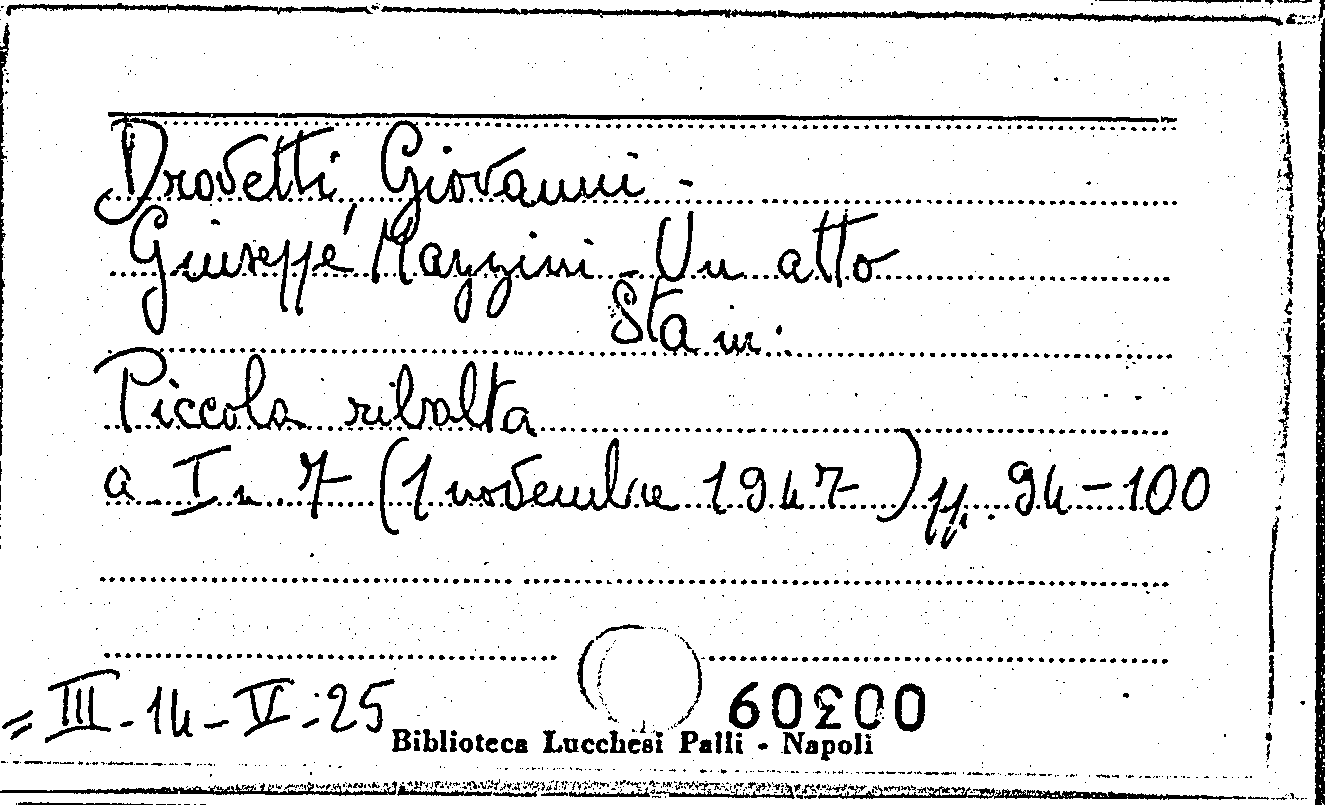 Drovetti, Giovanni -
Giuseppe Mazzini - Un atto
Sta in:
Piccola ribalta
a. I n. 7 (1 novembre 1947) pp. 94-100
= III - 14 - V - 25
00309
Biblioteca Lucchesi Palli - Napoli